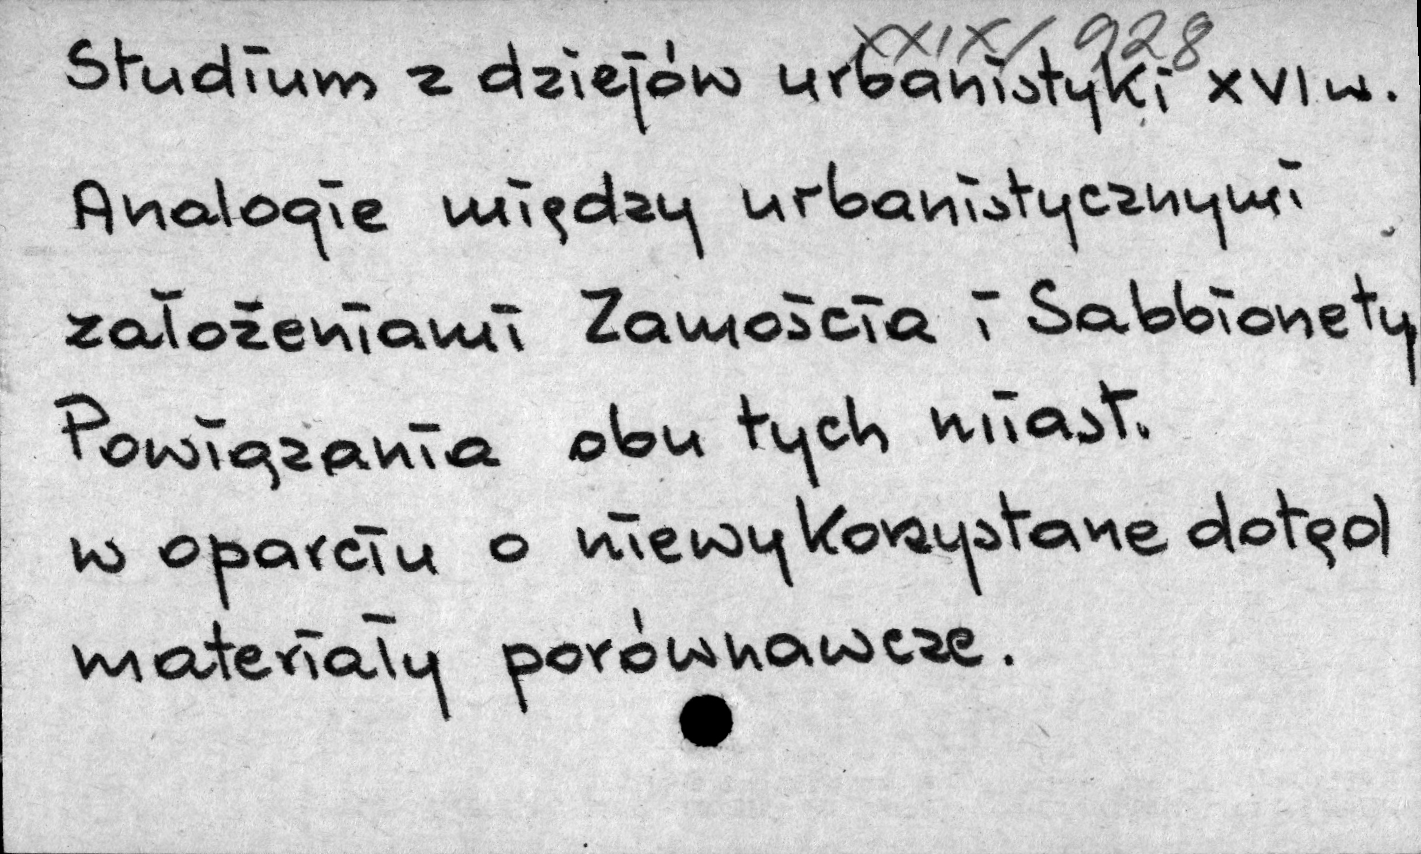 XXIX/928
Studium z dziejów urbanistyki XVI w.
Analogie między urbanistycznymi
założeniami Zamościa i Sabbionety
Powiązania obu tych miast.
w oparciu o niewykorzystane dotąd
materiały porównawcze.